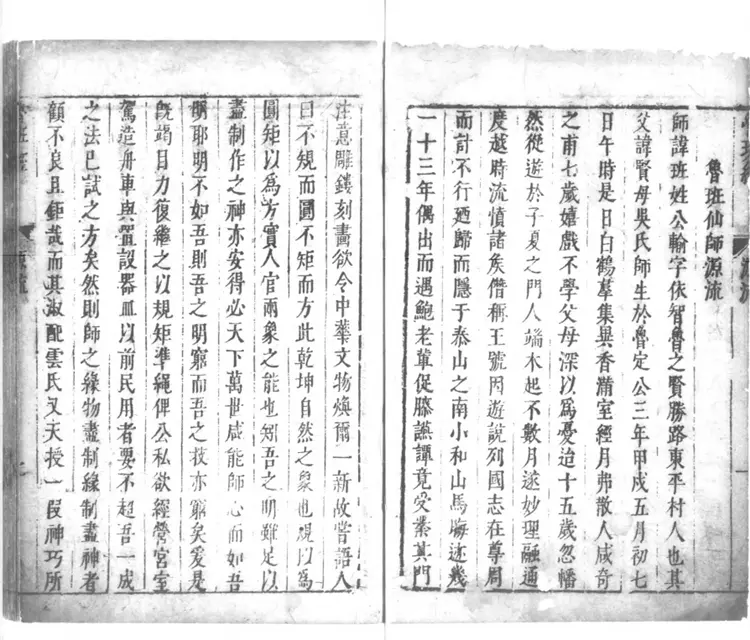 魯班仙師源流
師諱班姓公輸字依智魯之賢勝路東平村人也其
父諱賢母吳氏師生於魯定公三年甲戌五月初七
日午時是日白鶴羣集異香滿室經月弗散人咸奇
之甫七歲嬉戲不學父母深以爲憂迨十五歲忽幡
然從遊於子夏之門人端木起不數月遂妙理融通
度越時流憤諸矦僭稱王號因遊說列國志在尊周
而計不行廼歸而隱于泰山之南小和山馬晦迹幾
一十三年偶出而遇鮑老輩促膝讌譚竟受業其門
注意雕鏤刻畫欲令中華文物煥爾一新故嘗語人
曰不規而圓不矩而方此乾坤自然之象也規以爲
圓矩以爲方實人官兩象之能也矧吾之明雖足以
盡制作之神亦安得必天下萬世咸能師心而如吾
明耶明不如吾則吾之明窮而吾之技亦窮矣爰是
旣竭目力復繼之以規矩準繩俾公私欲經營宮室
駕造舟車與置設器皿以前民用者要不超吾一成
之法已試之方矣然則師之緣物盡制緣制盡神者
顧不良且鉅哉而其淑配雲氏又天授一段神巧所